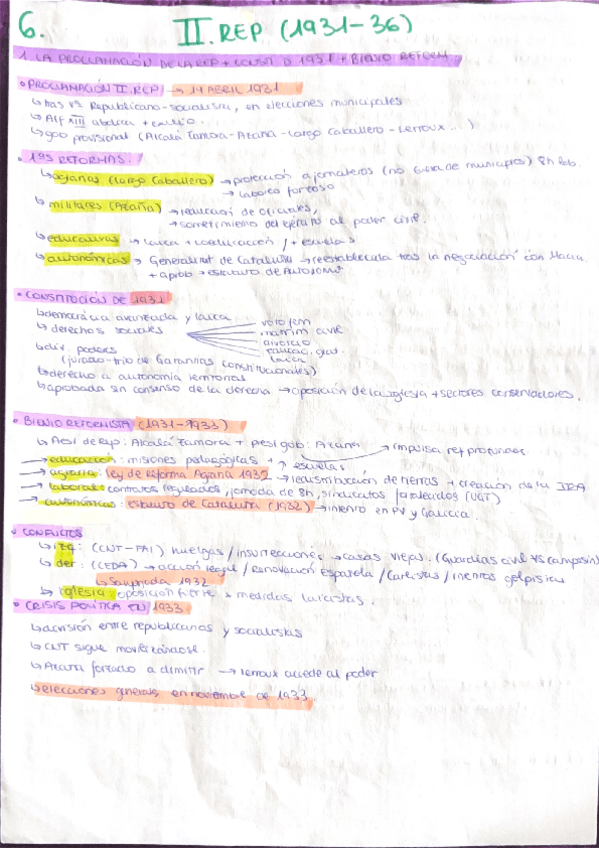 6. II. REP (1931-36)
1. LA PROCLAMACIÓN DE LA REP + CONST D 1931 + BIENIO REFORM.
• PROCLAMACIÓN II. REP → 14 ABRIL 1931
↳ tras Republicano-socialista, en elecciones municipales
↳ Alf XIII abdica + exilio.
↳ gob provisional (Alcalá Zamora-Azaña-Largo Caballero-Lerroux...)
• 1ªS REFORMAS:
↳ agrarias (Largo Caballero) → protección a jornaleros (no fuera de municipios) 8h lab.
→ laboreo forzoso
↳ militares (Azaña) → reducción de oficiales,
→ sometimiento del ejército al poder civil.
↳ educativas → laica + coeducación / + escuelas
↳ autonómicas → Generalitat de Cataluña → reestablecida tras la negociación con Macià
+ aprob → estatuto de Autonomía
• CONSTITUCIÓN DE 1931
↳ democracia avanzada y laica
↳ derechos sociales
voto fem
matrim civil
divorcio
educac. grat.
laica
↳ div. poderes
(jurado-trio de Garantías Constitucionales)
↳ derecho a autonomía territorial
↳ aprobada sin consenso de la derecha → oposición de la iglesia + sectores conservadores.
• BIENIO REFORMISTA (1931-1933)
↳ Presi de Rep: Alcalá Zamora + presi gob: Azaña → impulsa ref profundas
→ educación: misiones pedagógicas + ↑ escuelas
→ agraria: ley de Reforma Agraria 1932 → redistribución de tierras + creación de la IRA
→ laboral: contratos regulados, jornada de 8h, sindicatos fortalecidos (UGT)
→ autonómicas: estatuto de Cataluña (1932) → intento en PV y Galicia.
• CONFLICTOS
↳ izq: (CNT-FAI) huelgas / insurrecciones → casas viejas. (Guardias civil VS campesin)
↳ der: (CEDA) → acción legal / Renovación española / Carlistas / intentos golpistas
↳ Sanjurjada 1932
↳ iglesia: oposición fuerte a medidas laicistas.
• CRISIS POLÍTICA EN 1933
↳ división entre republicanos y socialistas
↳ CNT sigue movilizándose.
↳ Azaña forzado a dimitir → Lerroux accede al poder
↳ elecciones generales en noviembre de 1933